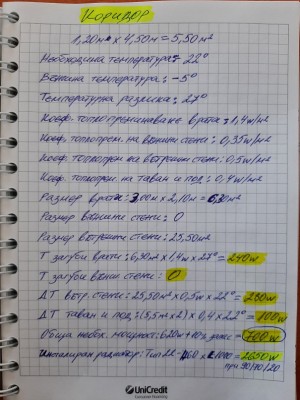 Коридор
1,20м x 4,50м = 5,50м²
Необходима температура - 22°
Външна температура: -5°
Температурна разлика: 27°
Коеф. топлопреминаване врата: 1,4w/м²
Коеф. топлопрем. на външни стени: 0,35w/м²
Коеф. топлопрем на вътрешни стени: 0,5w/м²
Коеф. топлопрем. на таван и под: 0,4w/м²
Размер врата: 3,00м x 2,10м = 6,30м²
Размер външни стени: 0
Размер вътрешни стени: 25,50м²
Т загуби врати: 6,30м² x 1,4w x 27° = 240w
Т загуби външ стени: 0
ΔТ вътр. стени: 25,50м² x 0,5w x 22° = 280w
ΔТ таван и под: (5,5м x 2) x 0,4 x 22° = 100w
Обща необх. мощност: 620w + 10% запас = 700w
Инсталиран радиатор: Тип 22- = 2650w
при 90/70/20
UniCredit
Consumer Financing